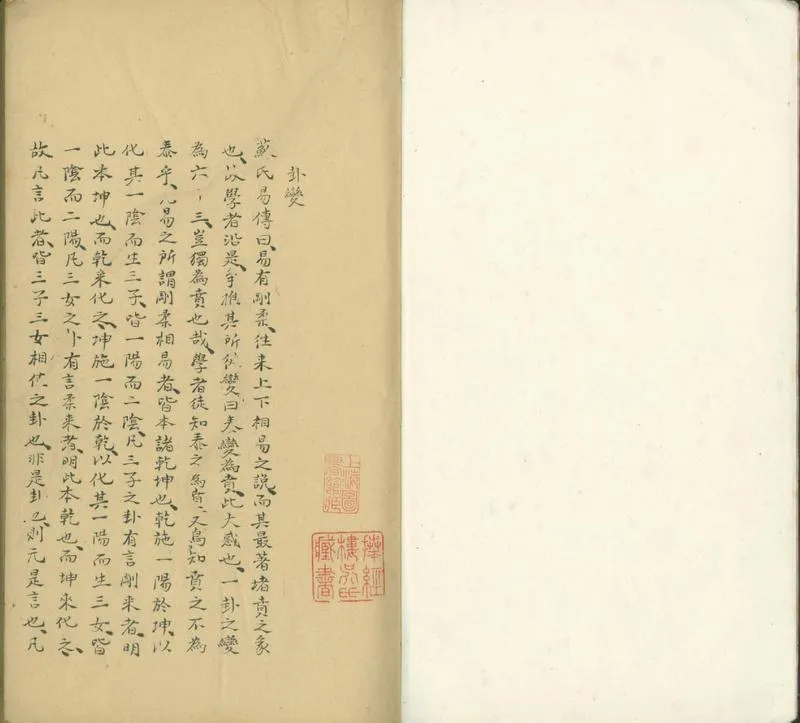 卦變
蘇氏易傳曰易有剛柔往来上下相易之說而其最著者賁之彖
也故學者沿是爭推其所從變曰泰變為賁此大惑也一卦之變
為六十三豈獨為賁也哉學者徒知泰之為賁又烏知賁之不為
泰乎凡易之所謂剛柔相易者皆本諸乾坤也乾施一陽於坤以
化其一陰而生三子皆一陽而二陰凡三子之卦有言剛来者明
此本坤也而乾来化之坤施一陰於乾以化其一陽而生三女皆
一陰而二陽凡三女之卦有言柔来者明此本乾也而坤來化之
故凡言此者皆三子三女相值之卦也非是卦也則无是言也凡
上海圖
書館藏
經
樓氏
藏書